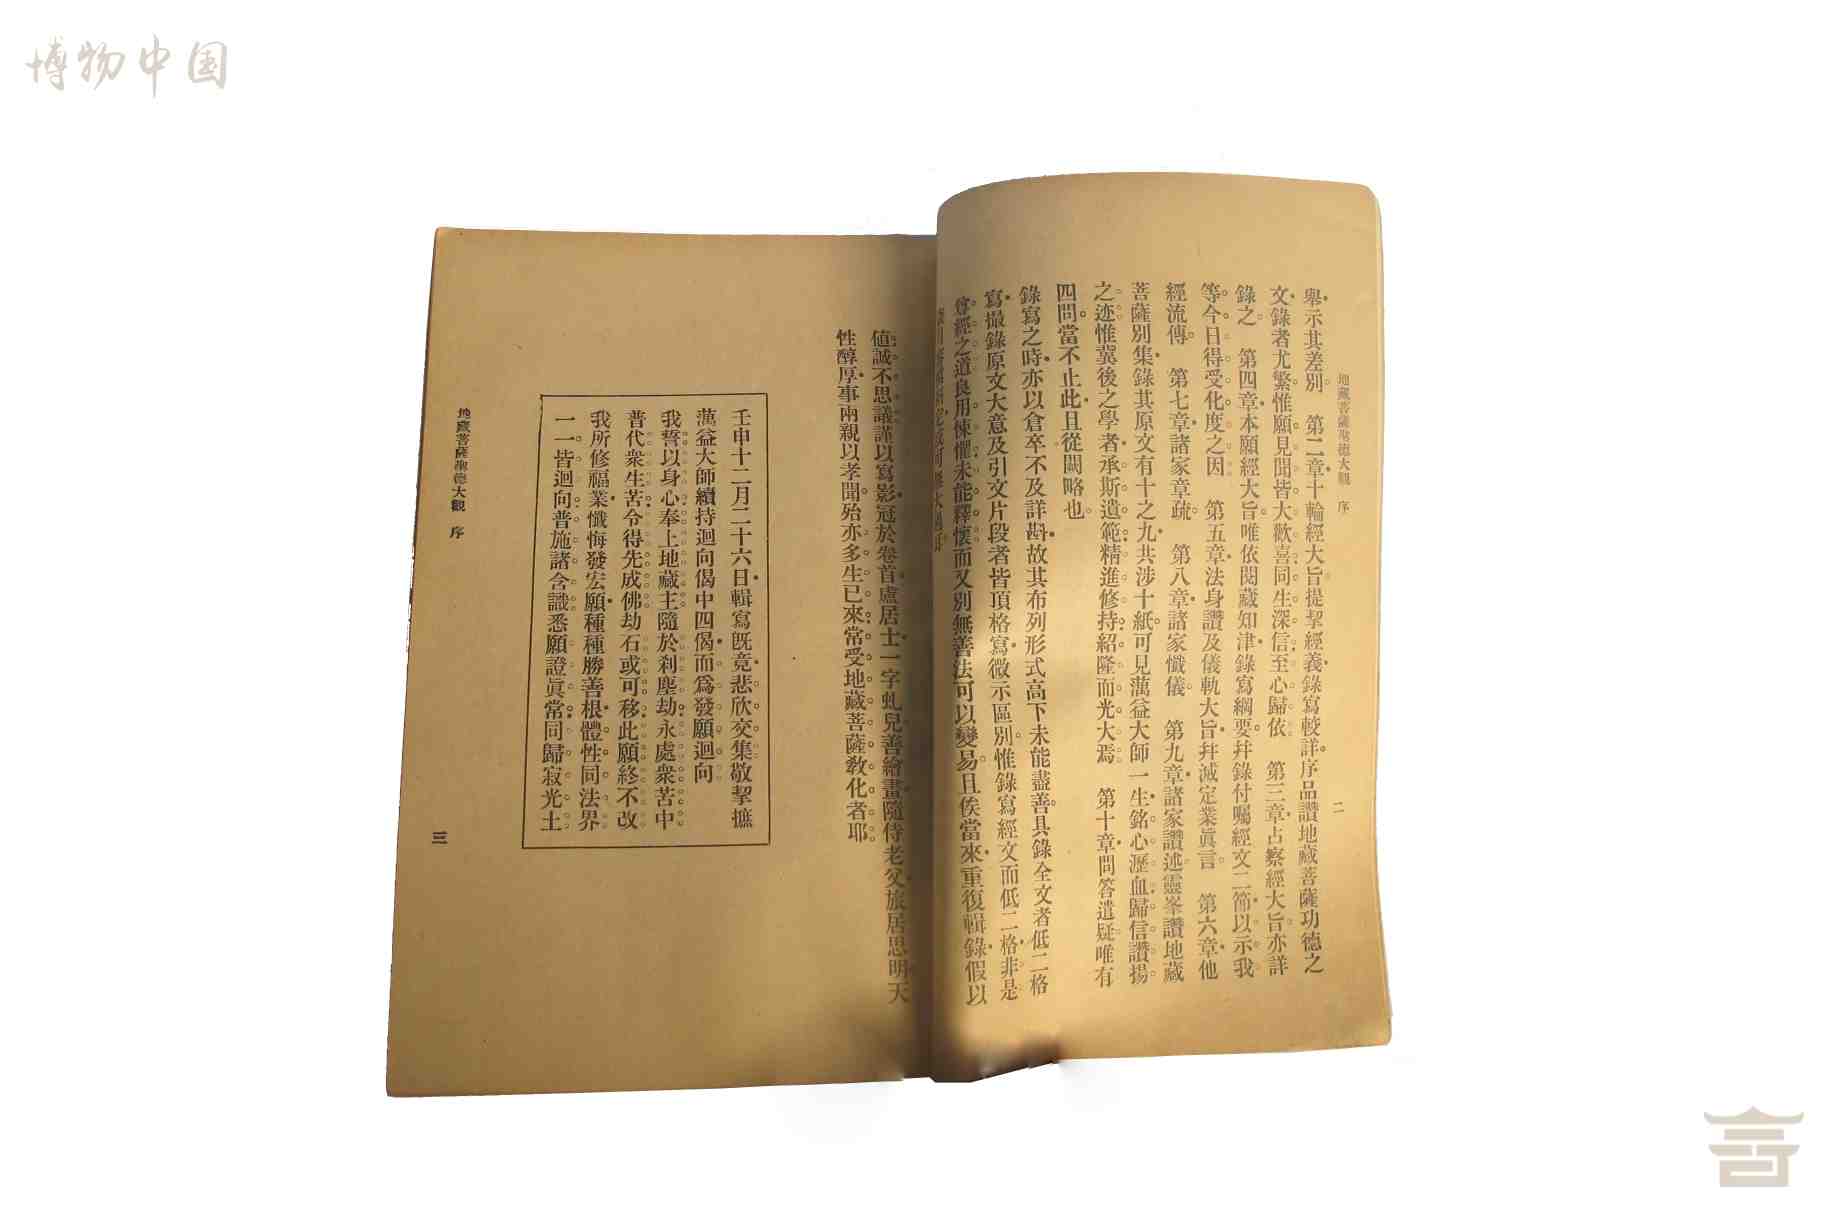 博物中国
地藏菩薩聖德大觀 序
二
舉示其差別 第二章十輪經大旨提挈經義錄寫較詳序品讚地藏菩薩功德之
文錄者尤繁惟願見聞皆大歡喜同生深信至心歸依 第三章占察經大旨亦詳
錄之 第四章本願經大旨唯依閱藏知津錄寫綱要幷錄付囑經文二節以示我
等今日得受化度之因 第五章法身讚及儀軌大旨幷滅定業眞言 第六章他
經流傳 第七章諸家章疏 第八章諸家懺儀 第九章諸家讚述靈峯讚地藏
菩薩別集錄其原文有十之九共涉十紙可見蕅益大師一生銘心瀝血歸信讚揚
之迹惟冀後之學者承斯遺範精進修持紹隆而光大焉 第十章問答遣疑唯有
四問當不止此且從闕略也
錄寫之時亦以倉卒不及詳斟故其布列形式高下未能盡善具錄全文者低二格
寫撮錄原文大意及引文片段者皆頂格寫微示區別惟錄寫經文而低二格非是
尊經之道良用悚懼未能釋懷而又別無善法可以變易且俟當來重復輯錄假以
値誠不思議謹以寫影冠於卷首盧居士一字虬兒善繪畫隨侍老父旅居思明天
性醇厚事兩親以孝聞殆亦多生已來常受地藏菩薩敎化者耶
壬申十二月二十六日輯寫旣竟悲欣交集敬挈摭
蕅益大師續持迴向偈中四偈而爲發願迴向
我誓以身心奉上地藏主隨於刹塵劫永處衆苦中
普代衆生苦令得先成佛劫石或可移此願終不改
我所修福業懺悔發宏願種種勝善根體性同法界
一一皆迴向普施諸含識悉願證眞常同歸寂光土
地藏菩薩聖德大觀 序
三